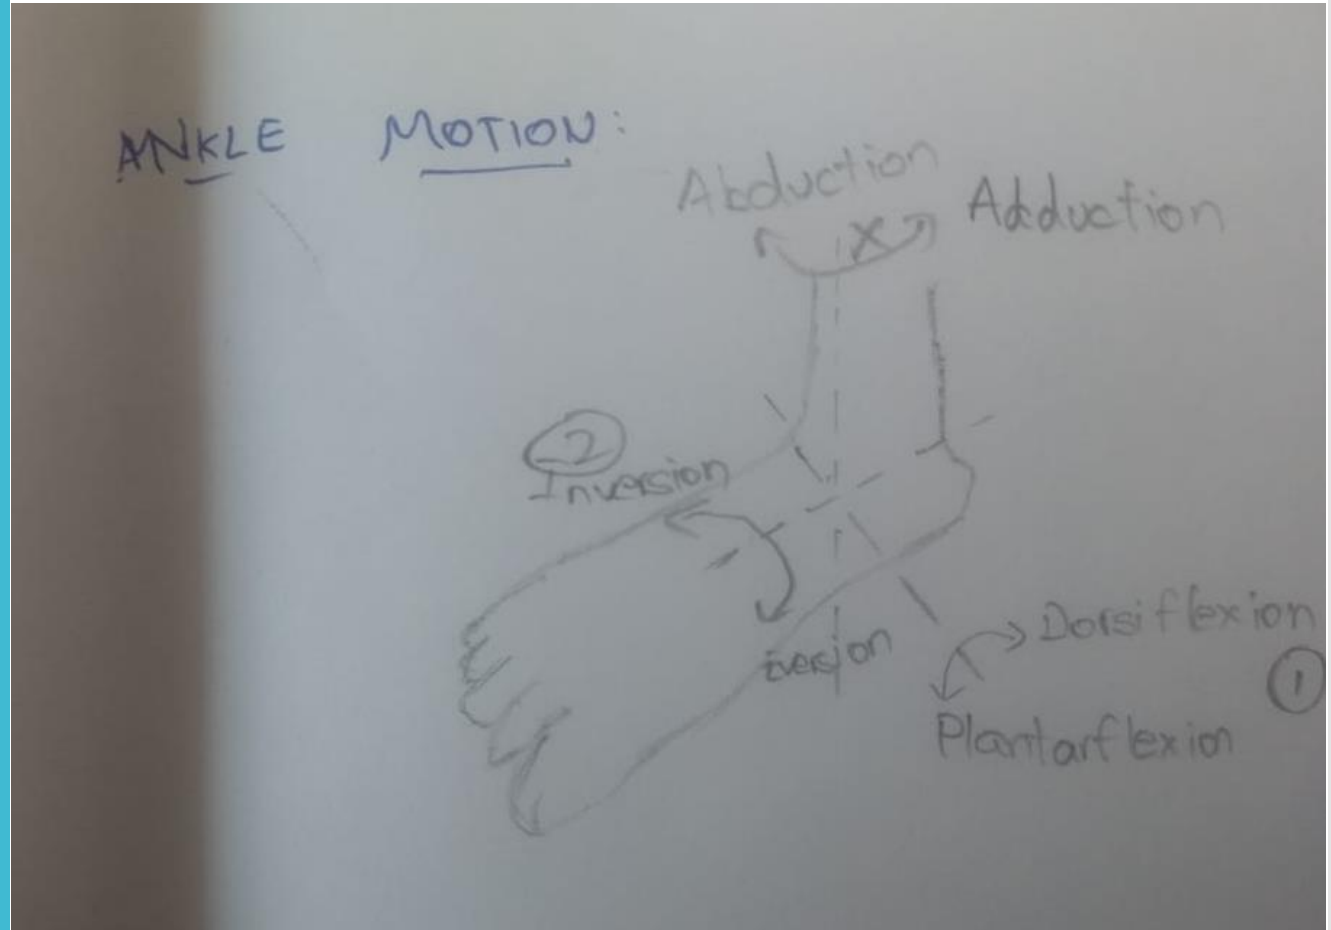 ANKLE MOTION:
Abduction
X
Adduction
2
Inversion
Eversion
Dorsiflexion
1
Plantarflexion